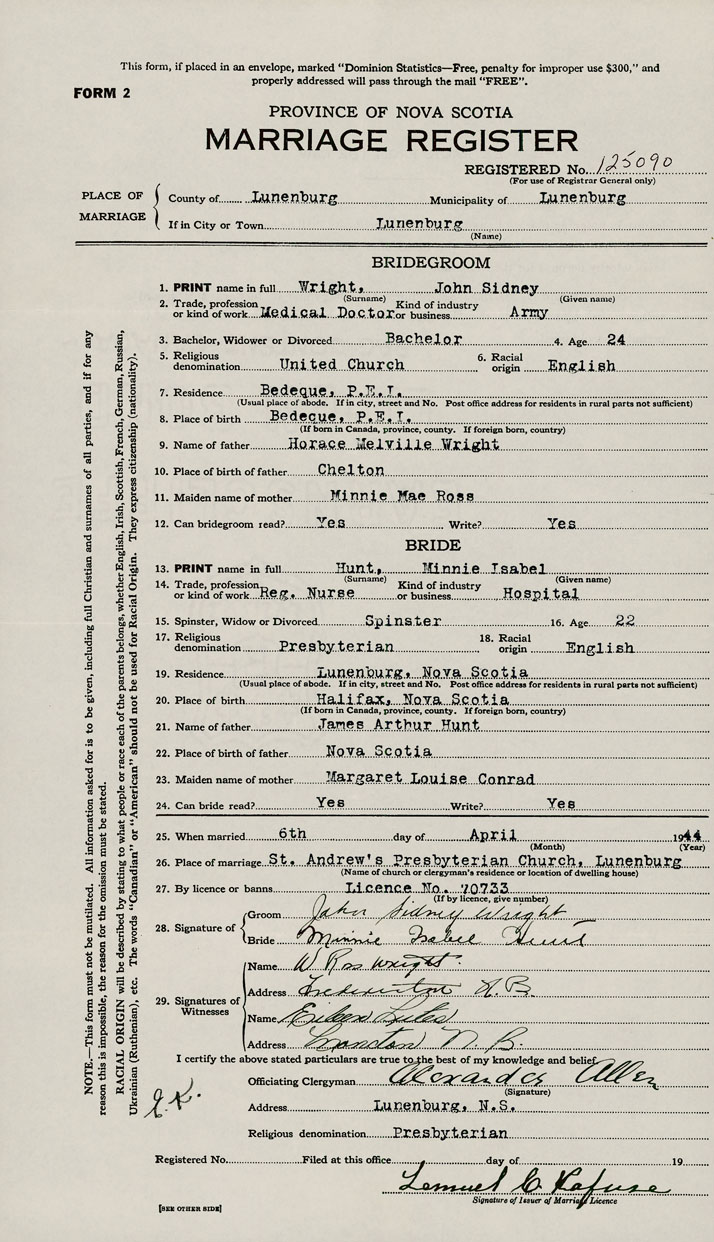 This form, if placed in an envelope, marked “Dominion Statistics—Free, penalty for improper use $300,” and
properly addressed will pass through the mail “FREE”.
FORM 2
PROVINCE OF NOVA SCOTIA
MARRIAGE REGISTER
REGISTERED No. 125090
(For use of Registrar General only)
PLACE OF MARRIAGE
County of Lunenburg Municipality of Lunenburg
If in City or Town Lunenburg
(Name)
BRIDEGROOM
1. PRINT name in full Wright, John Sidney
(Surname) (Given name)
2. Trade, profession or kind of work Medical Doctor Kind of industry or business Army
3. Bachelor, Widower or Divorced Bachelor 4. Age 24
5. Religious denomination United Church 6. Racial origin English
7. Residence Bedeque, P.E.I.
(Usual place of abode. If in city, street and No. Post office address for residents in rural parts not sufficient)
8. Place of birth Bedeque, P.E.I.
(If born in Canada, province, county. If foreign born, country)
9. Name of father Horace Melville Wright
10. Place of birth of father Chelton
11. Maiden name of mother Minnie Mae Ross
12. Can bridegroom read? Yes Write? Yes
BRIDE
13. PRINT name in full Hunt, Minnie Isabel
(Surname) (Given name)
14. Trade, profession or kind of work Reg. Nurse Kind of industry or business Hospital
15. Spinster, Widow or Divorced Spinster 16. Age 22
17. Religious denomination Presbyterian 18. Racial origin English
19. Residence Lunenburg, Nova Scotia
(Usual place of abode. If in city, street and No. Post office address for residents in rural parts not sufficient)
20. Place of birth Halifax, Nova Scotia
(If born in Canada, province, county. If foreign born, country)
21. Name of father James Arthur Hunt
22. Place of birth of father Nova Scotia
23. Maiden name of mother Margaret Louise Conrad
24. Can bride read? Yes Write? Yes
25. When married 6th day of April 1944
(Month) (Year)
26. Place of marriage St. Andrew's Presbyterian Church, Lunenburg
(Name of church or clergyman's residence or location of dwelling house)
27. By licence or banns Licence No. 70733
(If by licence, give number)
28. Signature of
Groom John Sidney Wright
Bride Minnie Isabel Hunt
29. Signatures of Witnesses
Name W Ross Wright
Address Fredericton N.B.
Name Eileen
Address Moncton N. B.
I certify the above stated particulars are true to the best of my knowledge and belief.
Officiating Clergyman Alexander Allen
(Signature)
Address Lunenburg, N.S.
Religious denomination Presbyterian
Registered No. Filed at this office day of 19
Lemuel C Hafuse
Signature of Issuer of Marriage Licence
[SEE OTHER SIDE]
NOTE.—This form must not be mutilated. All information asked for is to be given, including full Christian and surnames of all parties, and if for any
reason this is impossible, the reason for the omission must be stated.
RACIAL ORIGIN will be described by stating to what people or race each of the parents belongs, whether English, Irish, Scottish, French, German, Russian,
Ukrainian (Ruthenian), etc. The words “Canadian” or “American” should not be used for Racial Origin. They express citizenship (nationality).